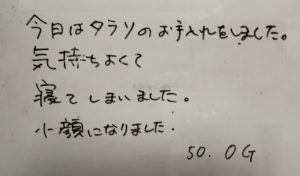 今日はタラソのお手入れをしました。
気持ちよくて
寝てしまいました。
小顔になりました.
50. OG